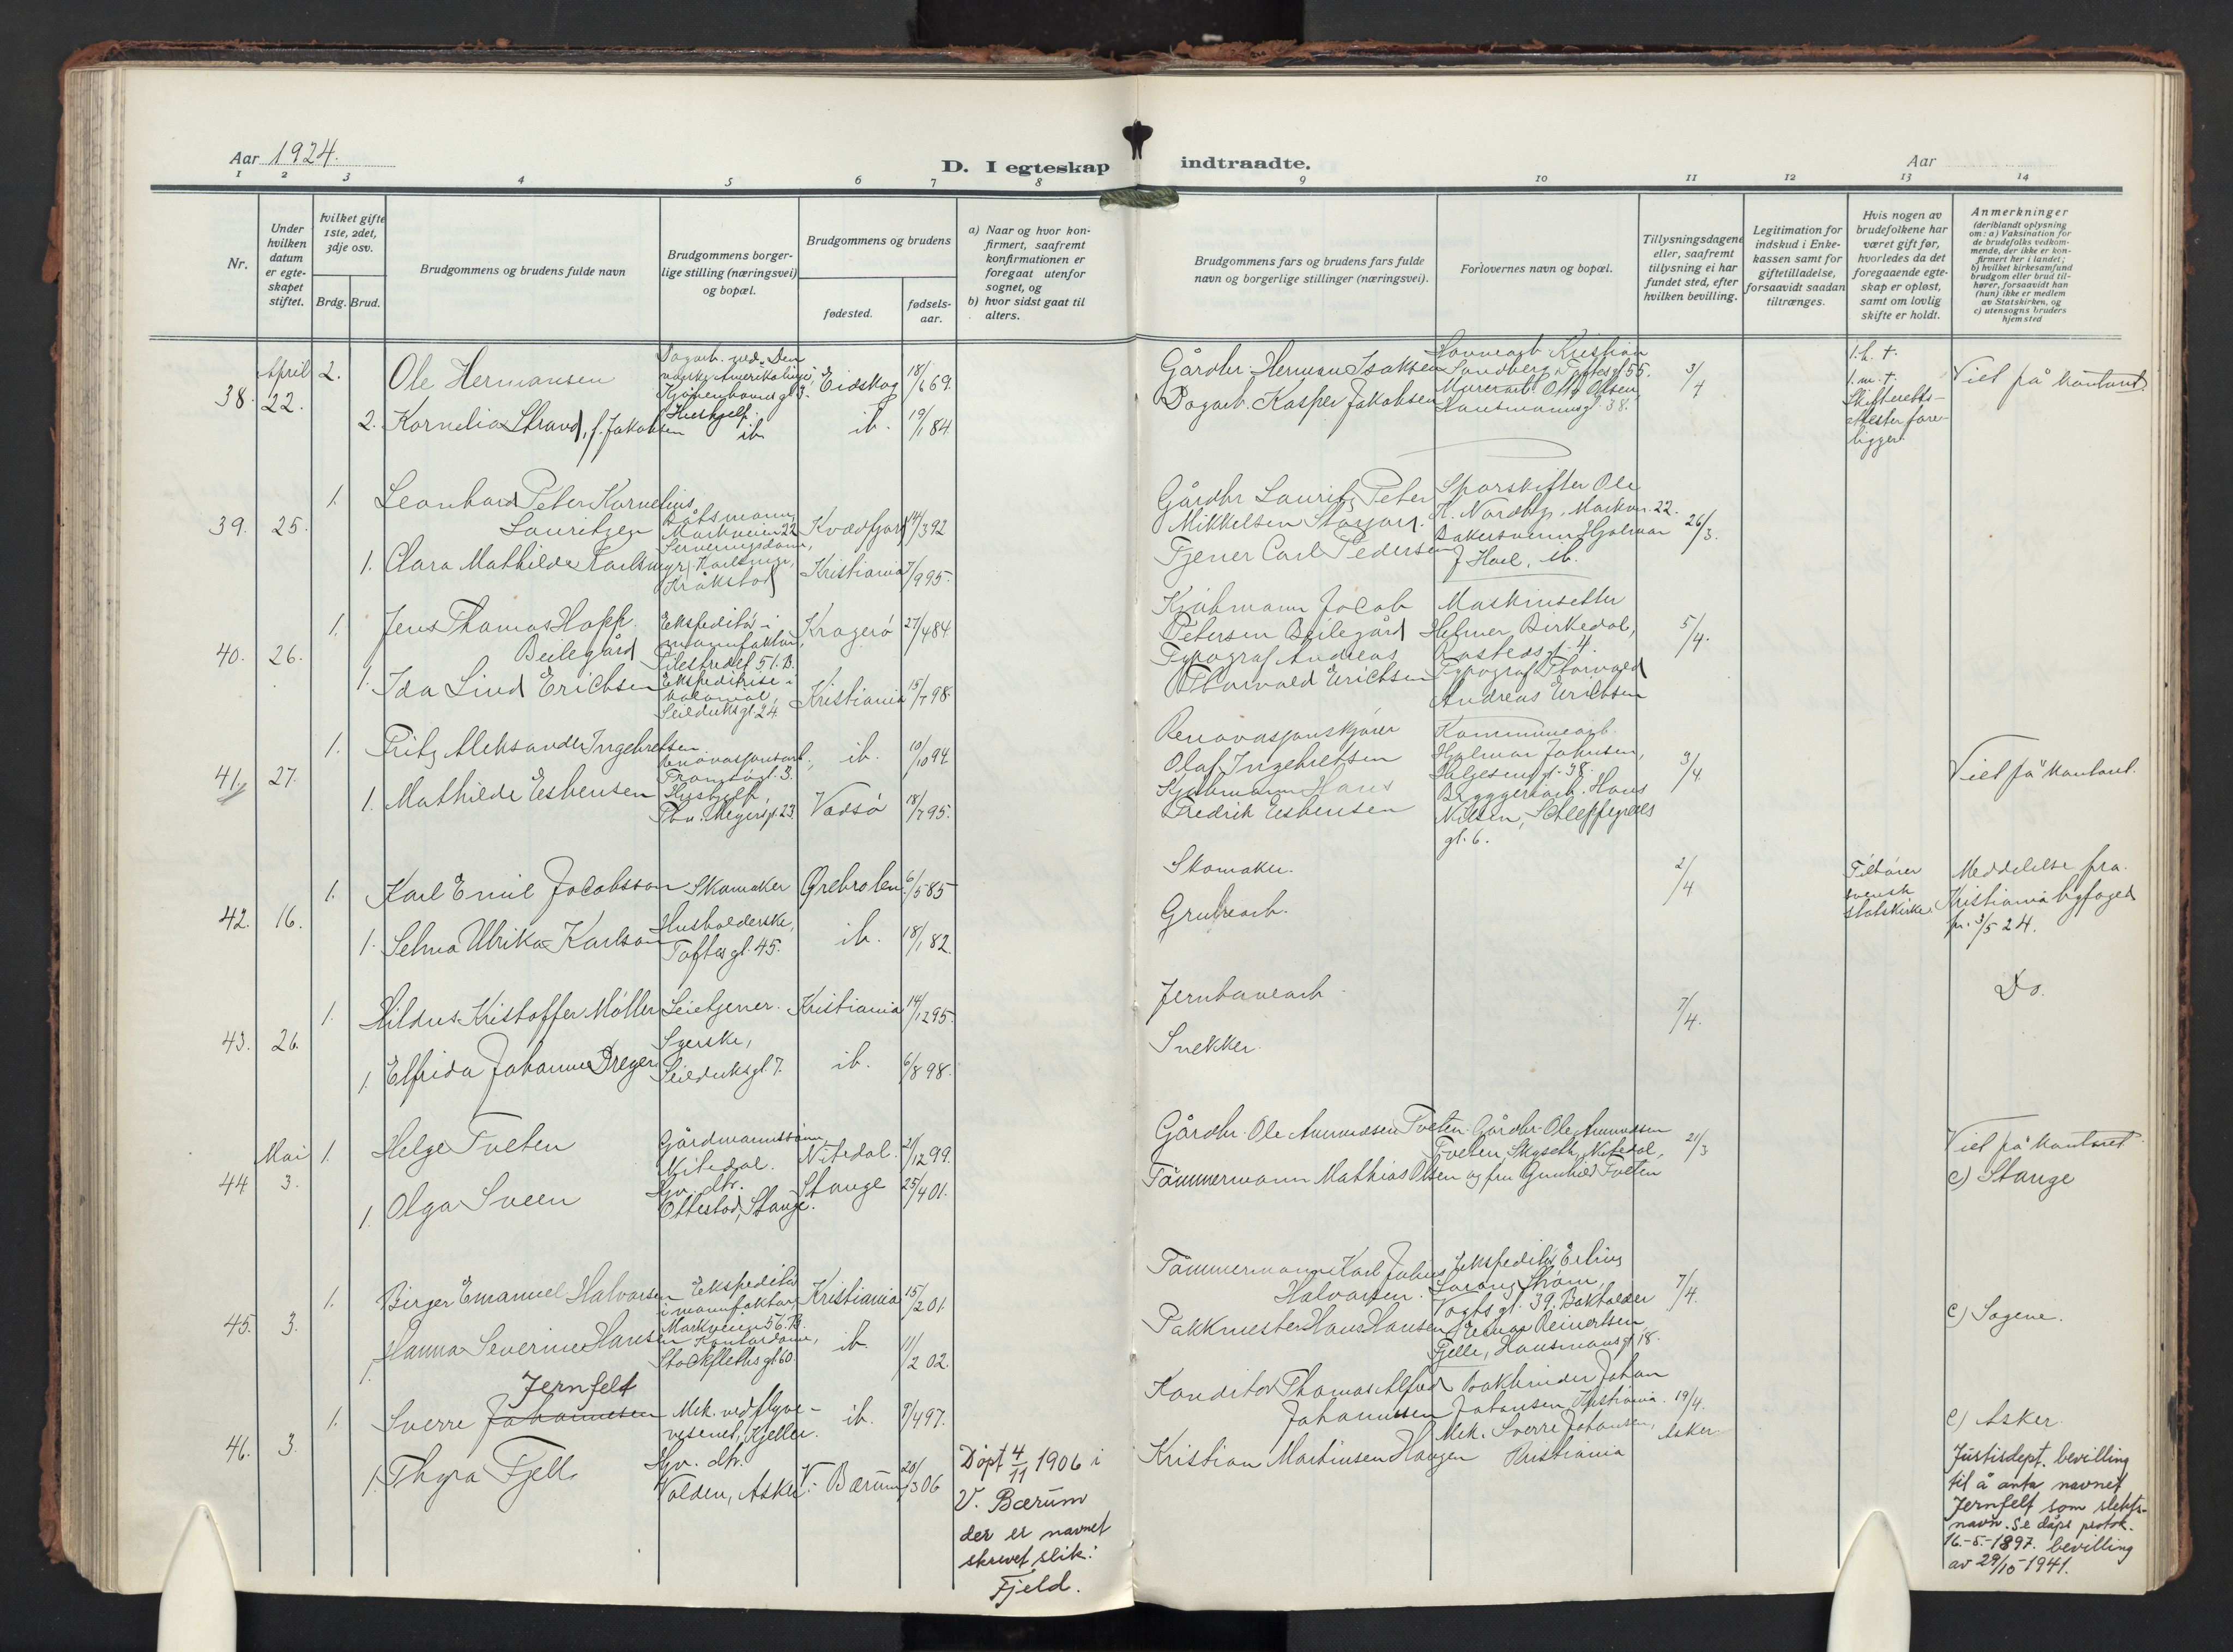 Aar 1924.
D. I egteskap indtraadte.
Aar
1 2 3 4 5 6 7 8 9 10 11 12 13 14
Nr.
Under hvilken datum er egteskapet stiftet.
hvilket gifte 1ste, 2det, 3dje osv.
Brdg. Brud.
Brudgommens og brudens fulde navn
Brudgommens borgerlige stilling (næringsvei) og bopæl.
Brudgommens og brudens
fødested.
fødselsaar.
a) Naar og hvor konfirmert, saafremt konfirmationen er foregaat utenfor sognet, og
b) hvor sidst gaat til alters.
Brudgommens fars og brudens fars fulde navn og borgerlige stillinger (næringsvei).
Forlovernes navn og bopæl.
Tillysningsdagene eller, saafremt tillysning ei har fundet sted, efter hvilken bevilling.
Legitimation for indskud i Enkekassen samt for giftetilladelse, forsaavidt saadan tiltrænges.
Hvis nogen av brudefolkene har været gift før, hvorledes da det foregaaende egteskap er opløst, samt om lovlig skifte er holdt.
Anmerkninger (deriblandt oplysning om: a) Vaksination for de brudefolks vedkommende, der ikke er konfirmert her i landet; b) hvilket kirkesamfund brudgom eller brud tilhører, forsaavidt han (hun) ikke er medlem av Statskirken, og c) utensogns bruders hjemsted
38.
April 22.
2.
Ole Hermansen
Dagarb. ved "Den norske Amerikalinje", Kjøbenhavnsgt. 3.
Eidskog
18/6 69.
2. Kornelia Strand, f. Jakobsen
Hushjelp. ib.
ib.
19/1 84.
Gårdbr. Herman Isaksen
Dagarb. Kasper Jakobsen
Havnearb. Kristian Sandberg, Toftesgt 55.
Murerarb. Otto Olsen, Hausmannsgt. 38.
3/4
1. h. †.
1. m. †.
Skifterettsattester foreligger.
Viet på kontoret.
39.
25.
1. Leonhard Peter Kornelius Lauritzen
Båtsmann, Markveien 22
Kvædfjord
14/3 92
1. Clara Mathilde Karlsmyr
Serveringsdame, Karlsmyr, Kråkstad
Kristiania
7/9 95.
Gårdbr Lauritz Peter Mikkelsen
Tjener Carl Pedersen
Sporskifter Ole K. Nordby, Markvn. 22.
Bakersvenn Hjalmar J Hoel, ib.
26/3.
40.
26.
1. Jens Thomas Hopp Beilegård
Ekspeditør i manufaktur, Pilestredet 51. B.
Kragerø
27/4 84
1. Ida Lind Erichsen
Ekspeditrise i kolonial, Seilduksgt. 24.
Kristiania
15/7 98.
Kjøbmann Jocob Petersen Beilegård
Typograf Andreas Thorvald Erichsen
Maskinsetter Helmer Birkedal, Rostedsgt. 4.
Typograf Thorvald Andreas Erichsen
5/4.
41.
27.
1. Fritz Aleksander Ingebretsen
Renovasjonsarb., Tromsøgt. 3.
ib.
10/10 94.
1. Mathilde Esbensen
Hushjelp, Thv. Meyersgt. 23.
Vadsø
18/7 95.
Renovasjonskjører Olaf Ingebretsen
Kjøbmann Hans Fredrik Esbensen
Kommunearb. Hjalmar Johnsen, Helgesensgt. 38.
Bryggeriarb. Hans Nilsen, Schleppegrells gt. 6.
3/4.
Viet på kontoret.
42.
16.
1. Karl Emil Jocobsson
Skomaker
Ørebro len
6/5 85
1. Selma Ulrika Karlson
Husholderske, Toftes gt. 45.
ib.
18/1 82.
Skomaker.
Grubearb.
2/4
Tilhører svensk statskirke.
Meddelelse fra Kristiania byfoged pr. 3/5 24.
43.
26.
1. Hildus Kristoffer Møller
Leietjener.
Kristiania
14/12 95.
1. Elfrida Johanne Dreyer
Syerske, Seilduksgt 7.
ib.
6/8 98.
Jernbanearb.
Snekker.
7/4.
Do.
44
Mai 3.
1. Helge Tveten
Gårdmannssønn, Nitedal.
Nitedal.
2/12 99.
1. Olga Sveen
Hjv. dtr. Ottestad, Stange.
Stange
25/4 01.
Gårdbr. Ole Amundsen Tveten.
Tømmermann Mathias Olsen
Gårdbr. Ole Amundsen Tveten, Skyseth, Nitedal, og fru Gunhild Tveten
21/3
Viet på kontoret
c) Stange
45.
3.
1. Birger Emanuel Halvorsen
Ekspeditør i manufaktur, Markveien 56. B.
Kristiania
15/2 01.
1. Hanna Severine Hansen
Kontordame, Stockfleths gt 60.
ib.
11/2 02.
Tømmermann Karl Julius Halvorsen.
Pakkmester Hans Hansen
Ekspeditør Erling Strøm, Vogts gt. 39.
Bokholder Reinertsen Fjelle, Hausmannsgt 18.
7/4.
c) Sagene.
46.
3.
Jernfelt
1. Sverre Johannesen
Mek. ved flyvevesenet, Kjeller.
ib.
9/4 97.
1. Thyra Fjell
Hjv. dtr. Valden, Asker.
V. Bærum
20/3 06
Døpt 4/11 1906 i V. Bærum der er navnet skrevet slik: Fjeld.
Konditor Thomas Alfred Johannesen
Kristian Martinsen Haugen
Bokbinder Johan Johansen, Kristiania.
Mek. Sverre Johansen, Kristiania
19/4.
Asker.
c) Asker.
Justisdept. bevilling til å anta navnet Jernfelt som slektsnavn. Se dåps protok. 16.-5.-1897. bevilling av 29/10-1941.